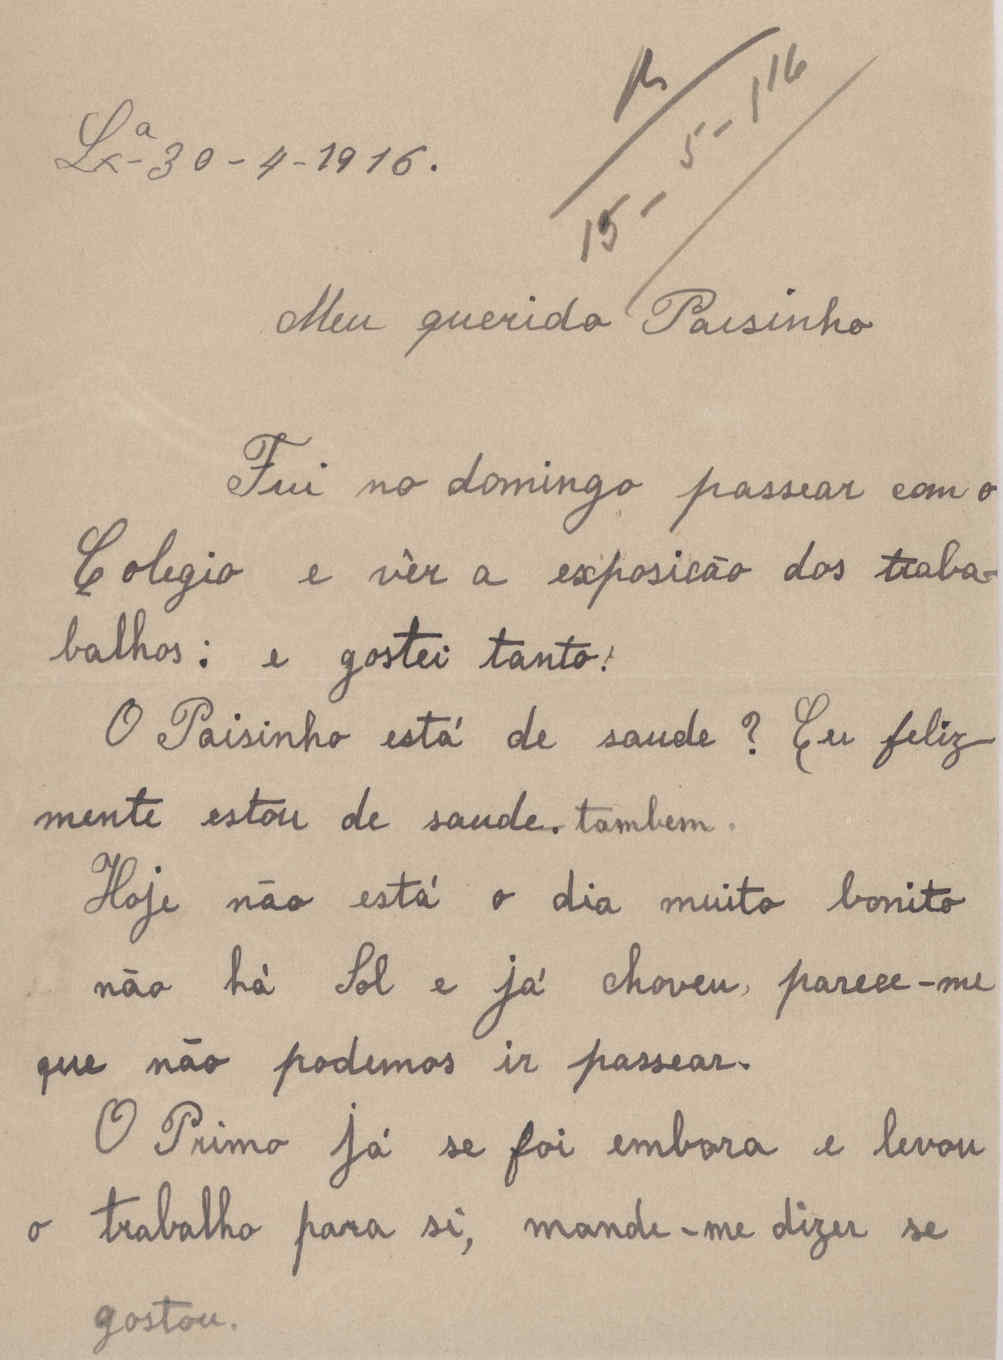 R
15-5-116
Lxª-30-4-1916.
Meu querido Paisinho
Fui no domingo passear com o
Colegio e vêr a exposicão dos traba-
balhos: e gostei tanto!
O Paisinho está de saude? Eu feliz
mente estou de saude. tambem.
Hoje não está o dia muito bonito
não há Sol e já choveu, parece-me
que não podemos ir passear.
O Primo já se foi embora e levou
o trabalho para si, mande-me dizer se
gostou.